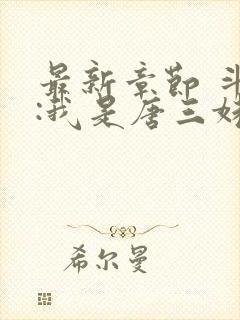 最新章节 斗
:我是唐三
希尔曼